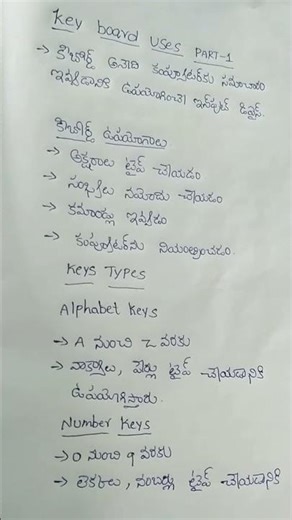 Key board Uses PART-1
→ కీబోర్డ్ అనేది కంప్యూటర్‌కు సమాచారం
ఇవ్వడానికి ఉపయోగించే ఇన్‌పుట్ డివైస్.
కీబోర్డ్ ఉపయోగాలు
→ అక్షరాలు టైప్ చేయడం
→ సంఖ్యలు నమోదు చేయడం
→ కమాండ్లు ఇవ్వడం
→ కంప్యూటర్‌ను నియంత్రించడం.
Keys Types
Alphabet Keys
→ A నుంచి Z వరకు
→ వాక్యాలు, పేర్లు టైప్ చేయడానికి
ఉపయోగిస్తారు.
Number Keys
→ 0 నుంచి 9 వరకు
→ లెక్కలు, నంబర్లు టైప్ చేయడానికి